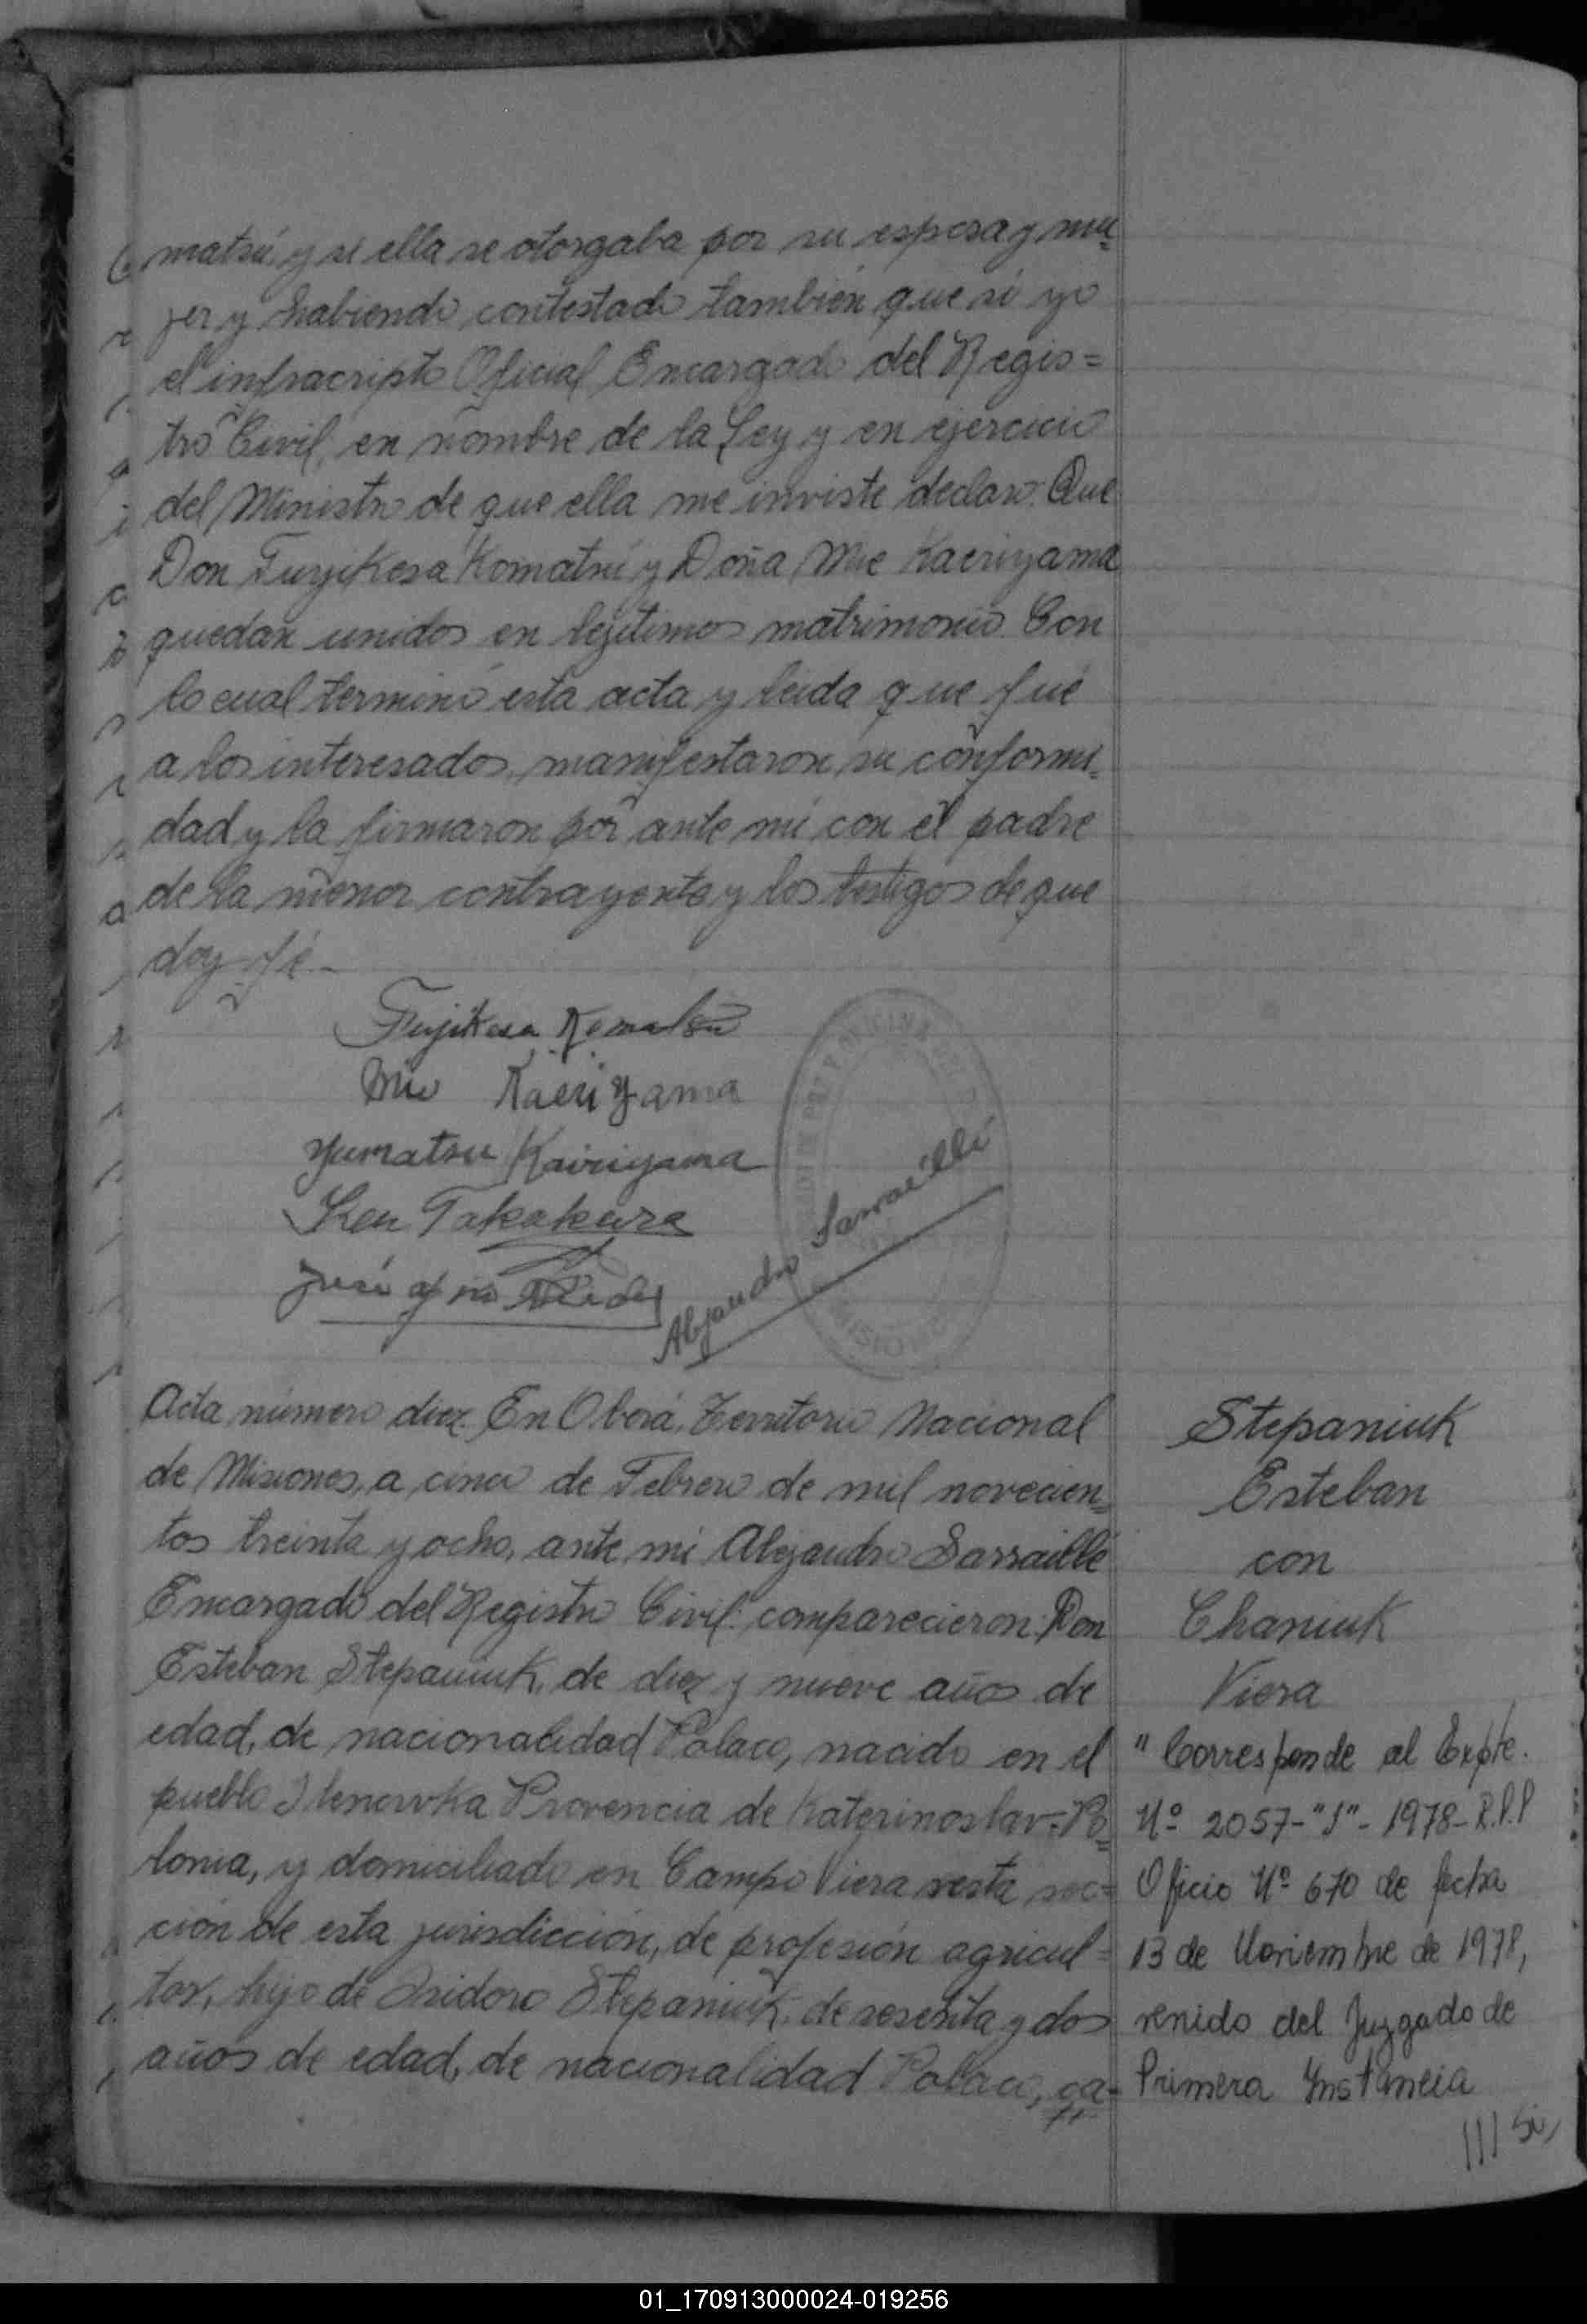 matsú y si ella se otorgaba por su esposa y mu=
jer y habiendo contestado también que si yo
el infracripto Oficial Encargado del Regis=
tro Civil, en nombre de la Ley y en ejercicio
del Ministro de que ella me inviste declaro: Que
Don Fuyikesa Komatsú y Doña Mie Kaeriyama
quedan unidos en lejitimos matrimonio. Con
lo cual terminó esta acta y leida que fué
a los interesados, manifestaron su conformi=
dad y la firmaron por ante mi con el padre
de la menor contrayente y los testigos de que
doy fé.-
Fujikesa Komatsu
Mie Kaeriyama
Yumatsu Kairiyama
Ken Takakura
José
Alejandro Sarraillé
MISIONES
Acta número diez. En Oberá, Territorio Nacional
de Misiones, a cinco de Febrero de mil novecien=
tos treinta y ocho, ante mi Alejandro Sarraillé
Encargado del Registro Civil: comparecieron: Don
Esteban Stepaniuk, de diez y nueve años de
edad, de nacionalidad Polaco, nacido en el
pueblo Ilenowka Provencia de Katerinoslav=Po=
lonia, y domiciliado en Campo Viera sesta sec=
ción de esta jurisdicción, de profesión agricul=
tor, hijo de Isidoro Stepaniuk, de sesenta y dos
años de edad, de nacionalidad Polaco, ca=
Stepaniuk
Esteban
con
Chaniuk
Viera
"Corresponde al Expte.
Nº 2057-"S"- 1978- R.P.P
Oficio Nº 670 de fecha
13 de Noviembre de 1978,
venido del Juzgado de
Primera Instancia
///